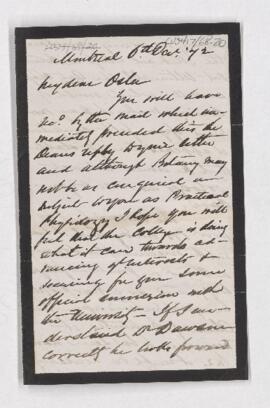 Montreal 6th Dec. '72
My dear Osler
You will have
rec'd by the mail which im-
mediately preceded this the
Deans reply to your letter
and although Botany may
not be as congenial a
subject to you as Practical
Physiology I hope you will
feel that the College is doing
what it can towards ad-
vancing your interests &
securing for you some
official connexion with
the University - If I un-
derstand Dr Dawson
correctly he looks forward